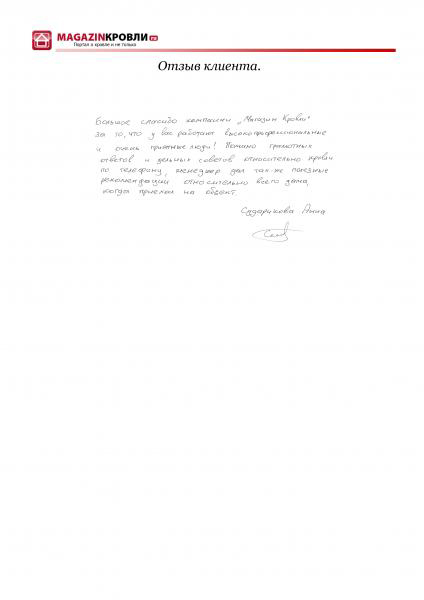 MAGAZINКРОВЛИ.ru
Портал о кровле и не только
Отзыв клиента.
Большое спасибо компании „Магазин Кровли"
за то, что у вас работают высокопрофессиональные
и очень приятные люди! Помимо грамотных
ответов и дельных советов относительно кровли
по телефону, менеджер дал так же полезные
рекомендации относительно всего дома,
когда приехал на объект.
Сударикова Анна